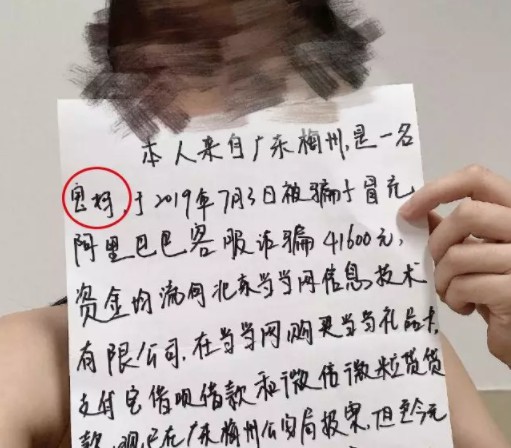 本人来自广东梅州,是一名
宝妈,于2019年7月3日被骗子冒充
阿里巴巴客服诈骗41600元,
资金均流向北京当当网信息技术
有限公司,在当当网购买当当礼品卡,
支付宝借呗借款和微信微粒贷贷
款,现已在广东梅州公安局报案,但至今无